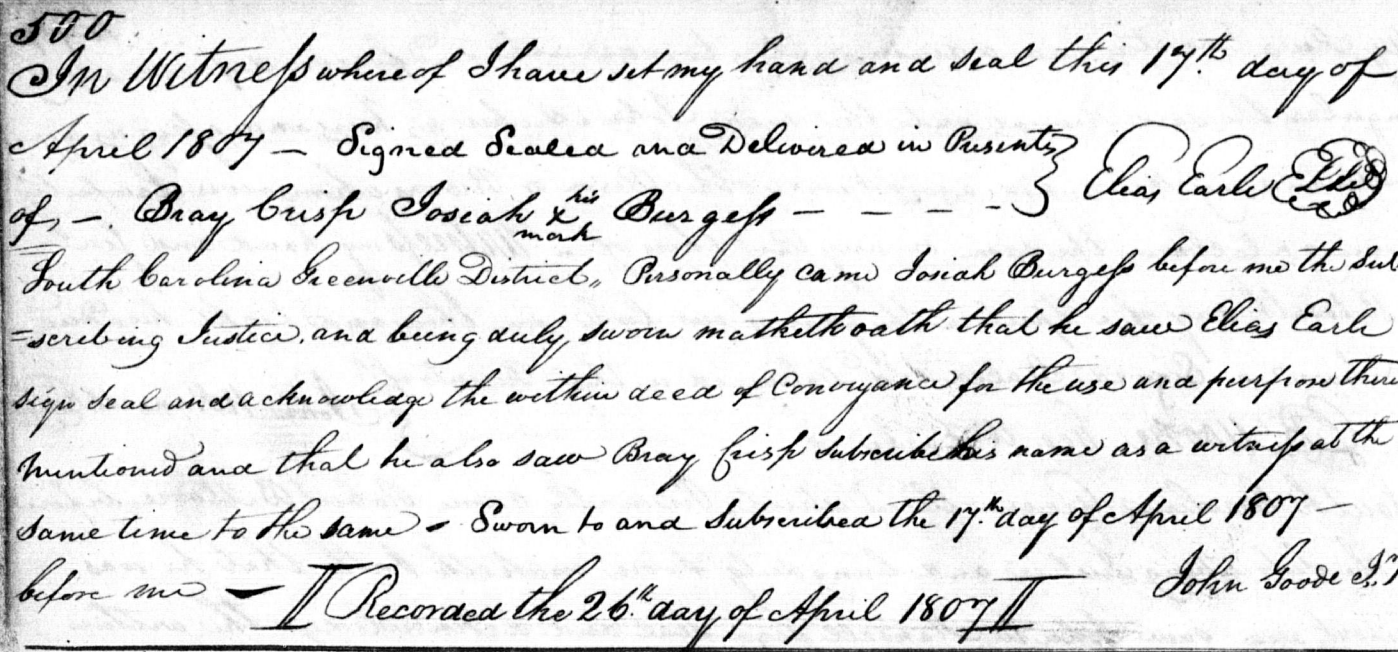 500
In Witness whereof I have set my hand and seal this 17th day of
April 1807 — Signed Sealed and Delivered in Presents } Elias Earle
of — Bray Crisp Josiah his x mark Burgess — — — —
South Carolina Greenville District,, Personally came Josiah Burgess before me the sub
=scribing Justice, and being duly sworn maketh oath that he saw Elias Earle
sign seal and acknowledge the within deed of Conveyance for the use and purpose there
mentioned and that he also saw Bray Crisp subscribe his name as a witness at the
same time to the same - Sworn to and subscribed the 17th day of April 1807 —
before me — Recorded the 26th day of April 1807 John Goode J.